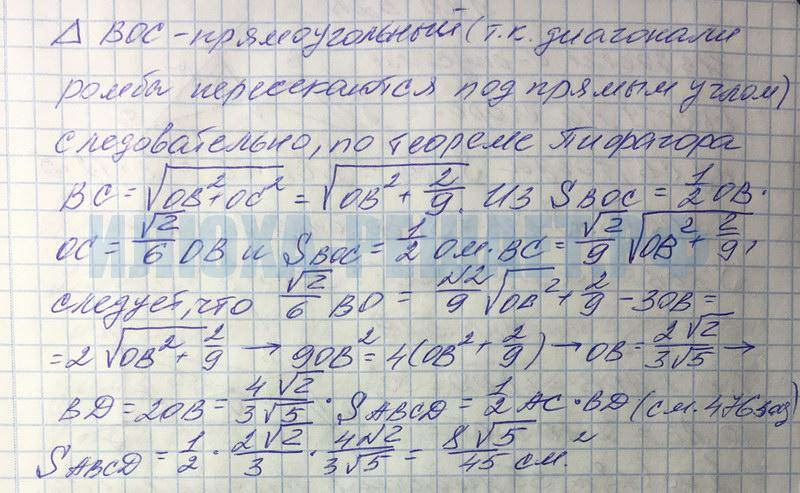 Δ BOC - прямоугольный (т.к. диагонали
ромба пересекаются под прямым углом)
следовательно, по теореме Пифагора
BC = √(OB² + OC²) = √(OB² + 2/9). Из S BOC = 1/2 OB ·
OC = √2/6 OB и S BOC = 1/2 OM · BC = √2/9 √(OB² + 2/9),
следует, что √2/6 BO = √2/9 √(OB² + 2/9) → 3OB =
= 2√(OB² + 2/9) → 9OB² = 4(OB² + 2/9) → OB = 2√2/3√5 →
BD = 2OB = 4√2/3√5 · S ABCD = 1/2 AC · BD (см. 476 зад)
S ABCD = 1/2 · 2√2/3 · 4√2/3√5 = 8√5/45 см.²